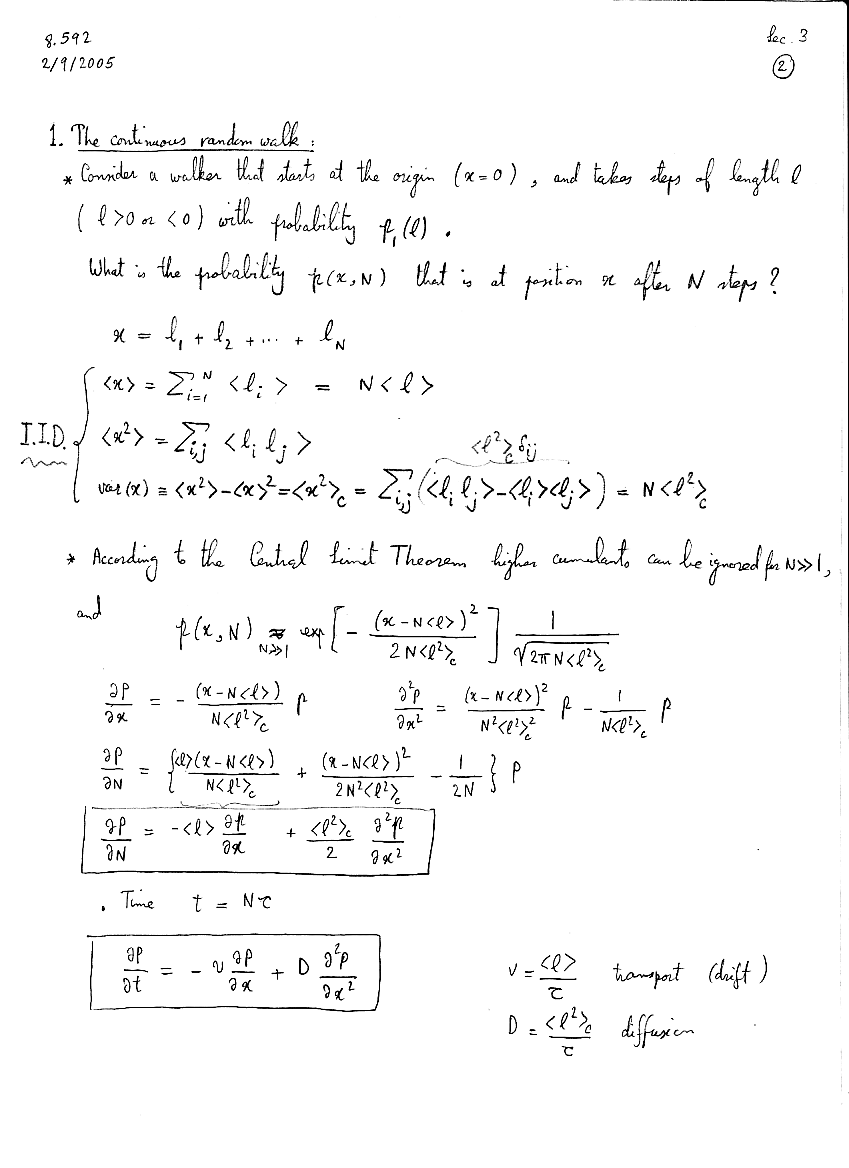 8.592
Lec. 3
2/9/2005
②
1. The continuous random walk :
* Consider a walker that starts at the origin (x=0) , and takes steps of length ℓ
( ℓ>0 or <0 ) with probability p₁(ℓ) .
What is the probability p(x,N) that is at position x after N steps ?
x = ℓ₁ + ℓ₂ + ... + ℓ_N
<x> = Σ_{i=1}^{N} <ℓ_i> = N<ℓ>
I.I.D.
<x²> = Σ_{i,j} <ℓ_i ℓ_j>
<ℓ²>_c δ_ij
var(x) ≡ <x²>-<x>² = <x²>_c = Σ_{i,j} (<ℓ_i ℓ_j>-<ℓ_i><ℓ_j>) = N<ℓ²>_c
* According to the Central Limit Theorem higher cumulants can be ignored for N≫1,
and
p(x,N) ≈_{N≫1} exp[ - (x-N<ℓ>)² / 2N<ℓ²>_c ] 1/√(2πN<ℓ²>_c)
∂p/∂x = - (x-N<ℓ>)/N<ℓ²>_c p ∂²p/∂x² = (x-N<ℓ>)²/N²<ℓ²>_c² p - 1/N<ℓ²>_c p
∂p/∂N = { <ℓ>(x-N<ℓ>)/N<ℓ²>_c + (x-N<ℓ>)²/2N²<ℓ²>_c - 1/2N } p
∂p/∂N = -<ℓ> ∂p/∂x + <ℓ²>_c/2 ∂²p/∂x²
. Time t = Nτ
∂p/∂t = - v ∂p/∂x + D ∂²p/∂x²
v = <ℓ>/τ transport (drift)
D = <ℓ²>_c/τ diffusion